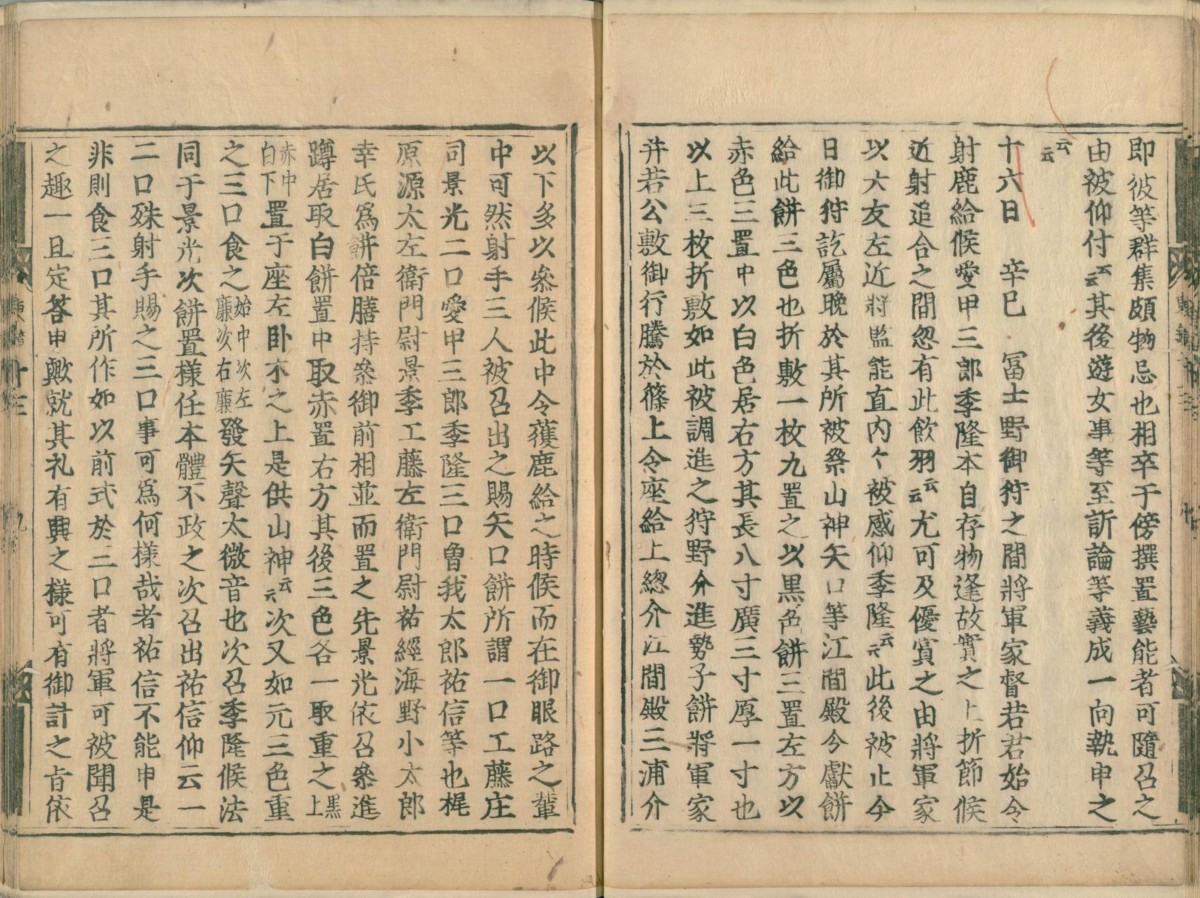 即彼等群集頗物忌也相卒于傍撰置藝能者可隨召之
由被仰付云云其後遊女事等至訢論等義成一向執申之
云云
十六日　辛巳　冨士野御狩之間將軍家督若君始令
射鹿給候愛甲三郎季隆本自存物逢故實之上折節候
近射追合之間忽有此飲羽云云尤可及優賞之由將軍家
以大友左近將監能直内々被感仰季隆云云此後被止今
日御狩訖屬晚於其所被祭山神矢口等江間殿令獻餅
給此餅三色也折敷一枚九置之以黒色餅三置左方以
赤色三置中以白色居右方其長八寸廣三寸厚一寸也
以上三枚折敷如此被調進之狩野介進勢子餅將軍家
并若公敷御行騰於篠上令座給上總介江間殿三浦介
以下多以參候此中令獲鹿給之時候而在御眼路之輩
中可然射手三人被召出之賜矢口餅所謂一口工藤庄
司景光二口愛甲三郎季隆三口曽我太郎祐信等也梶
原源太左衛門尉景季工藤左衛門尉祐經海野小太郎
幸氏爲餅倍膳持參御前相並而置之先景光依召參進
蹲居取白餅置中取赤置右方其後三色各一取重之黒上
赤中白下置于座左卧木之上是供山神云云次又如元三色重
之三口食之始中次左廉次右廉發矢聲太微音也次召季隆候法
同于景光次餅置樣任本體不政之次召出祐信仰云一
二口殊射手賜之三口事可爲何樣哉者祐信不能申是
非則食三口其所作如以前式於三口者將軍可被聞召
之趣一且定答申歟就其礼有興之樣可有御計之旨依